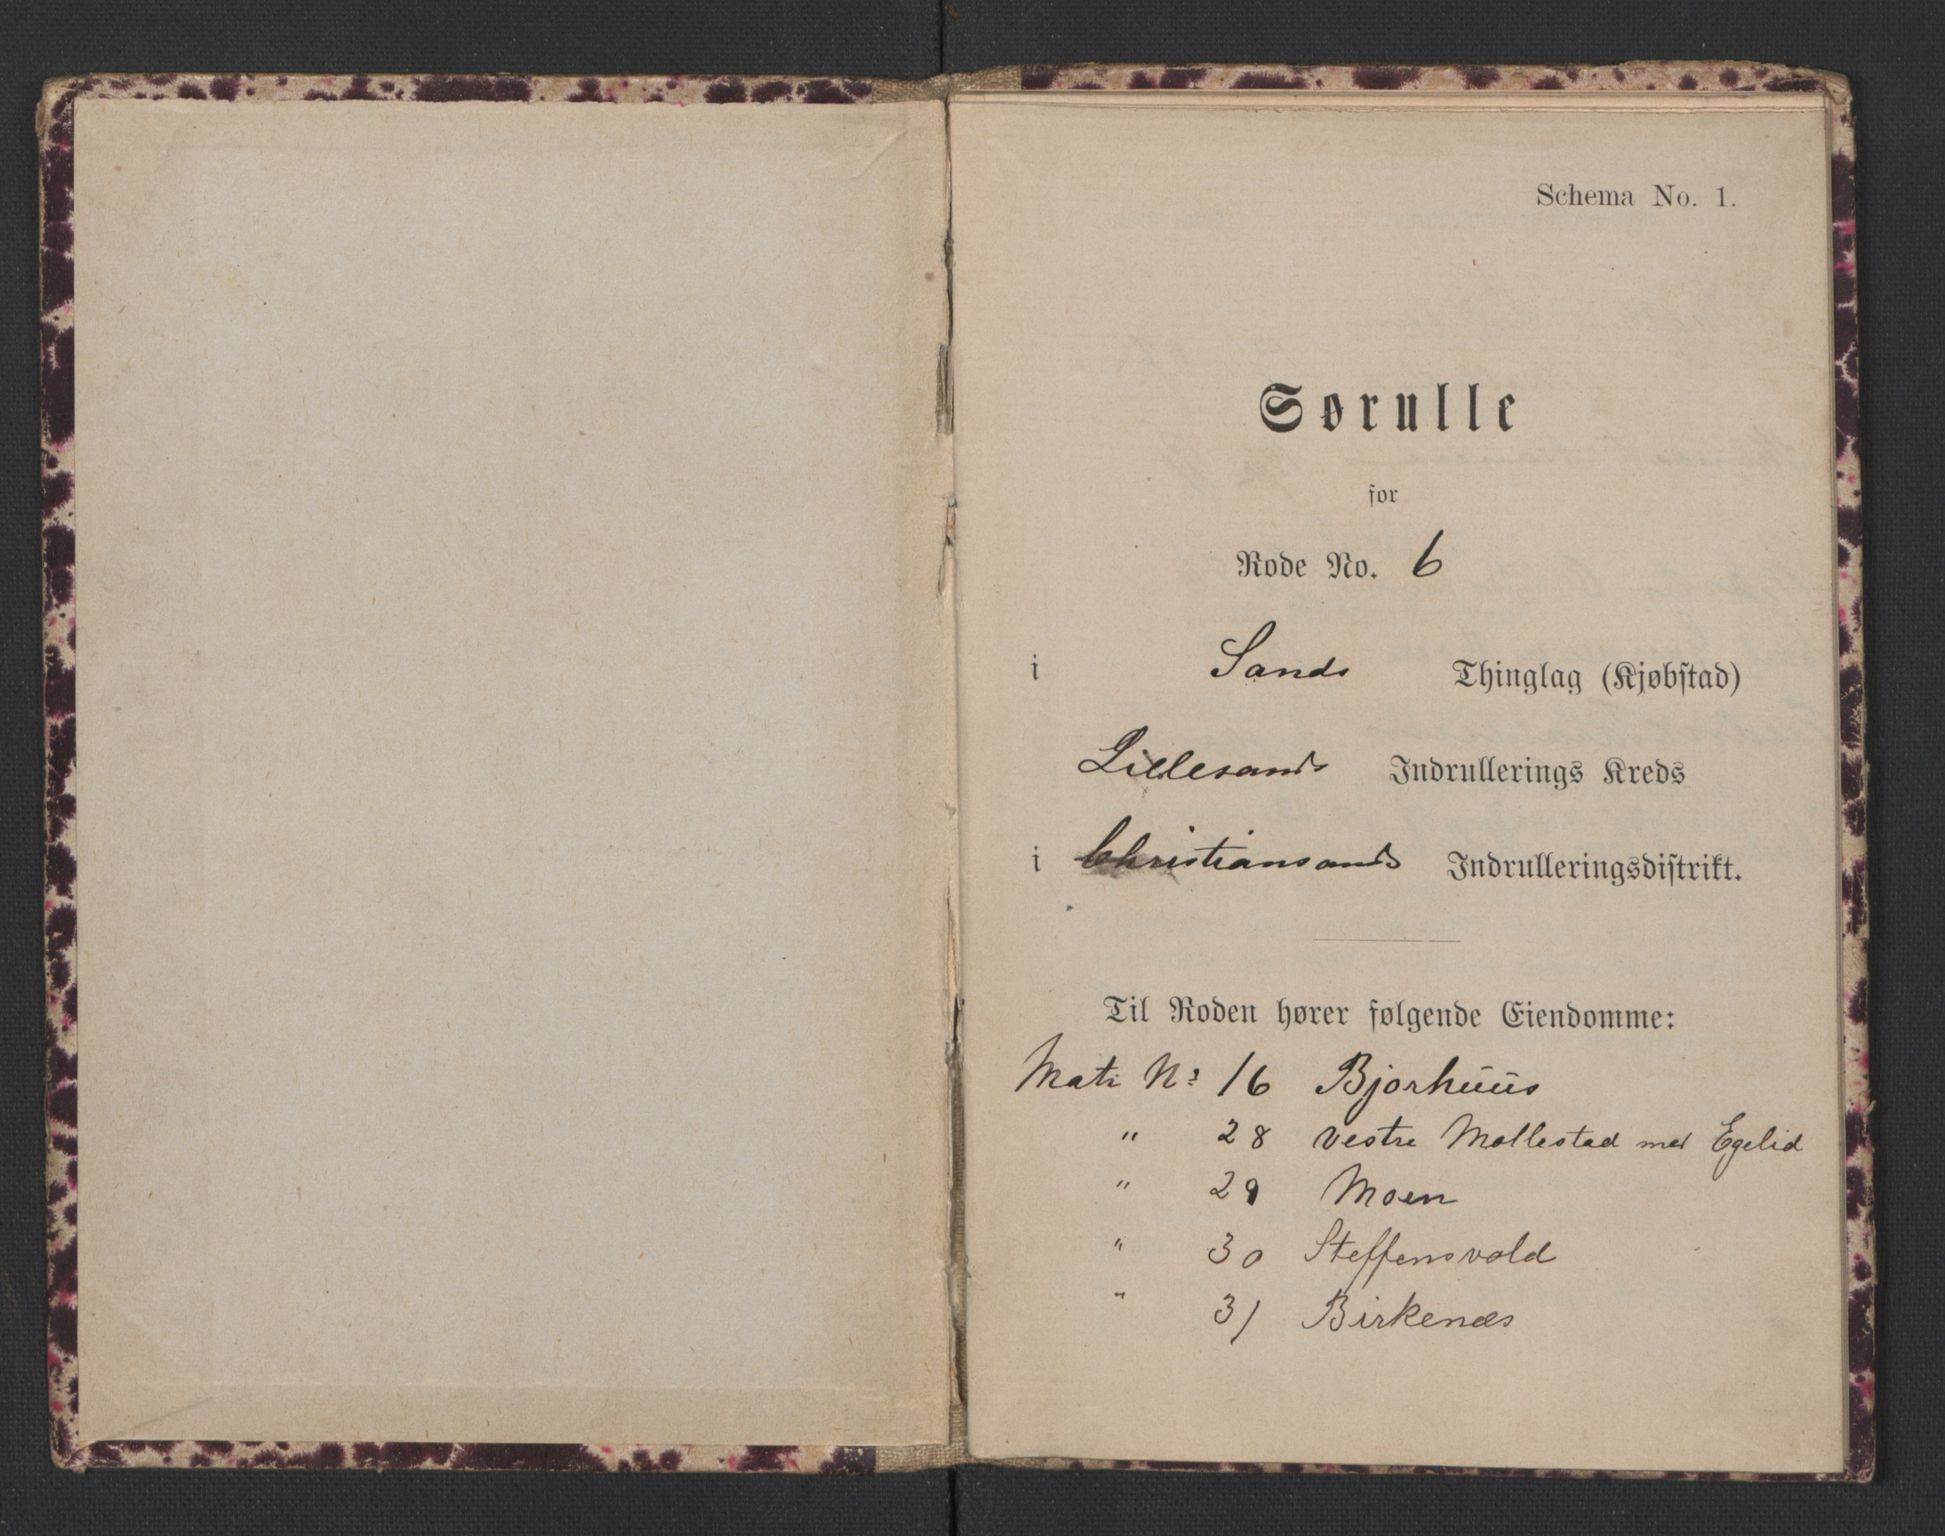 Schema No. 1.
Sørulle
for
Rode No. 6
i Sands Thinglag (Kjøbstad)
Lillesands Indrullerings Kreds
i Christiansands Indrulleringsdistrikt.
Til Roden hører følgende Eiendomme:
Matr No 16 Bjorhuus
" 28 vestre Mollestad med Egelid
" 29 Moen
" 30 Steffensvold
" 31 Birkenæs